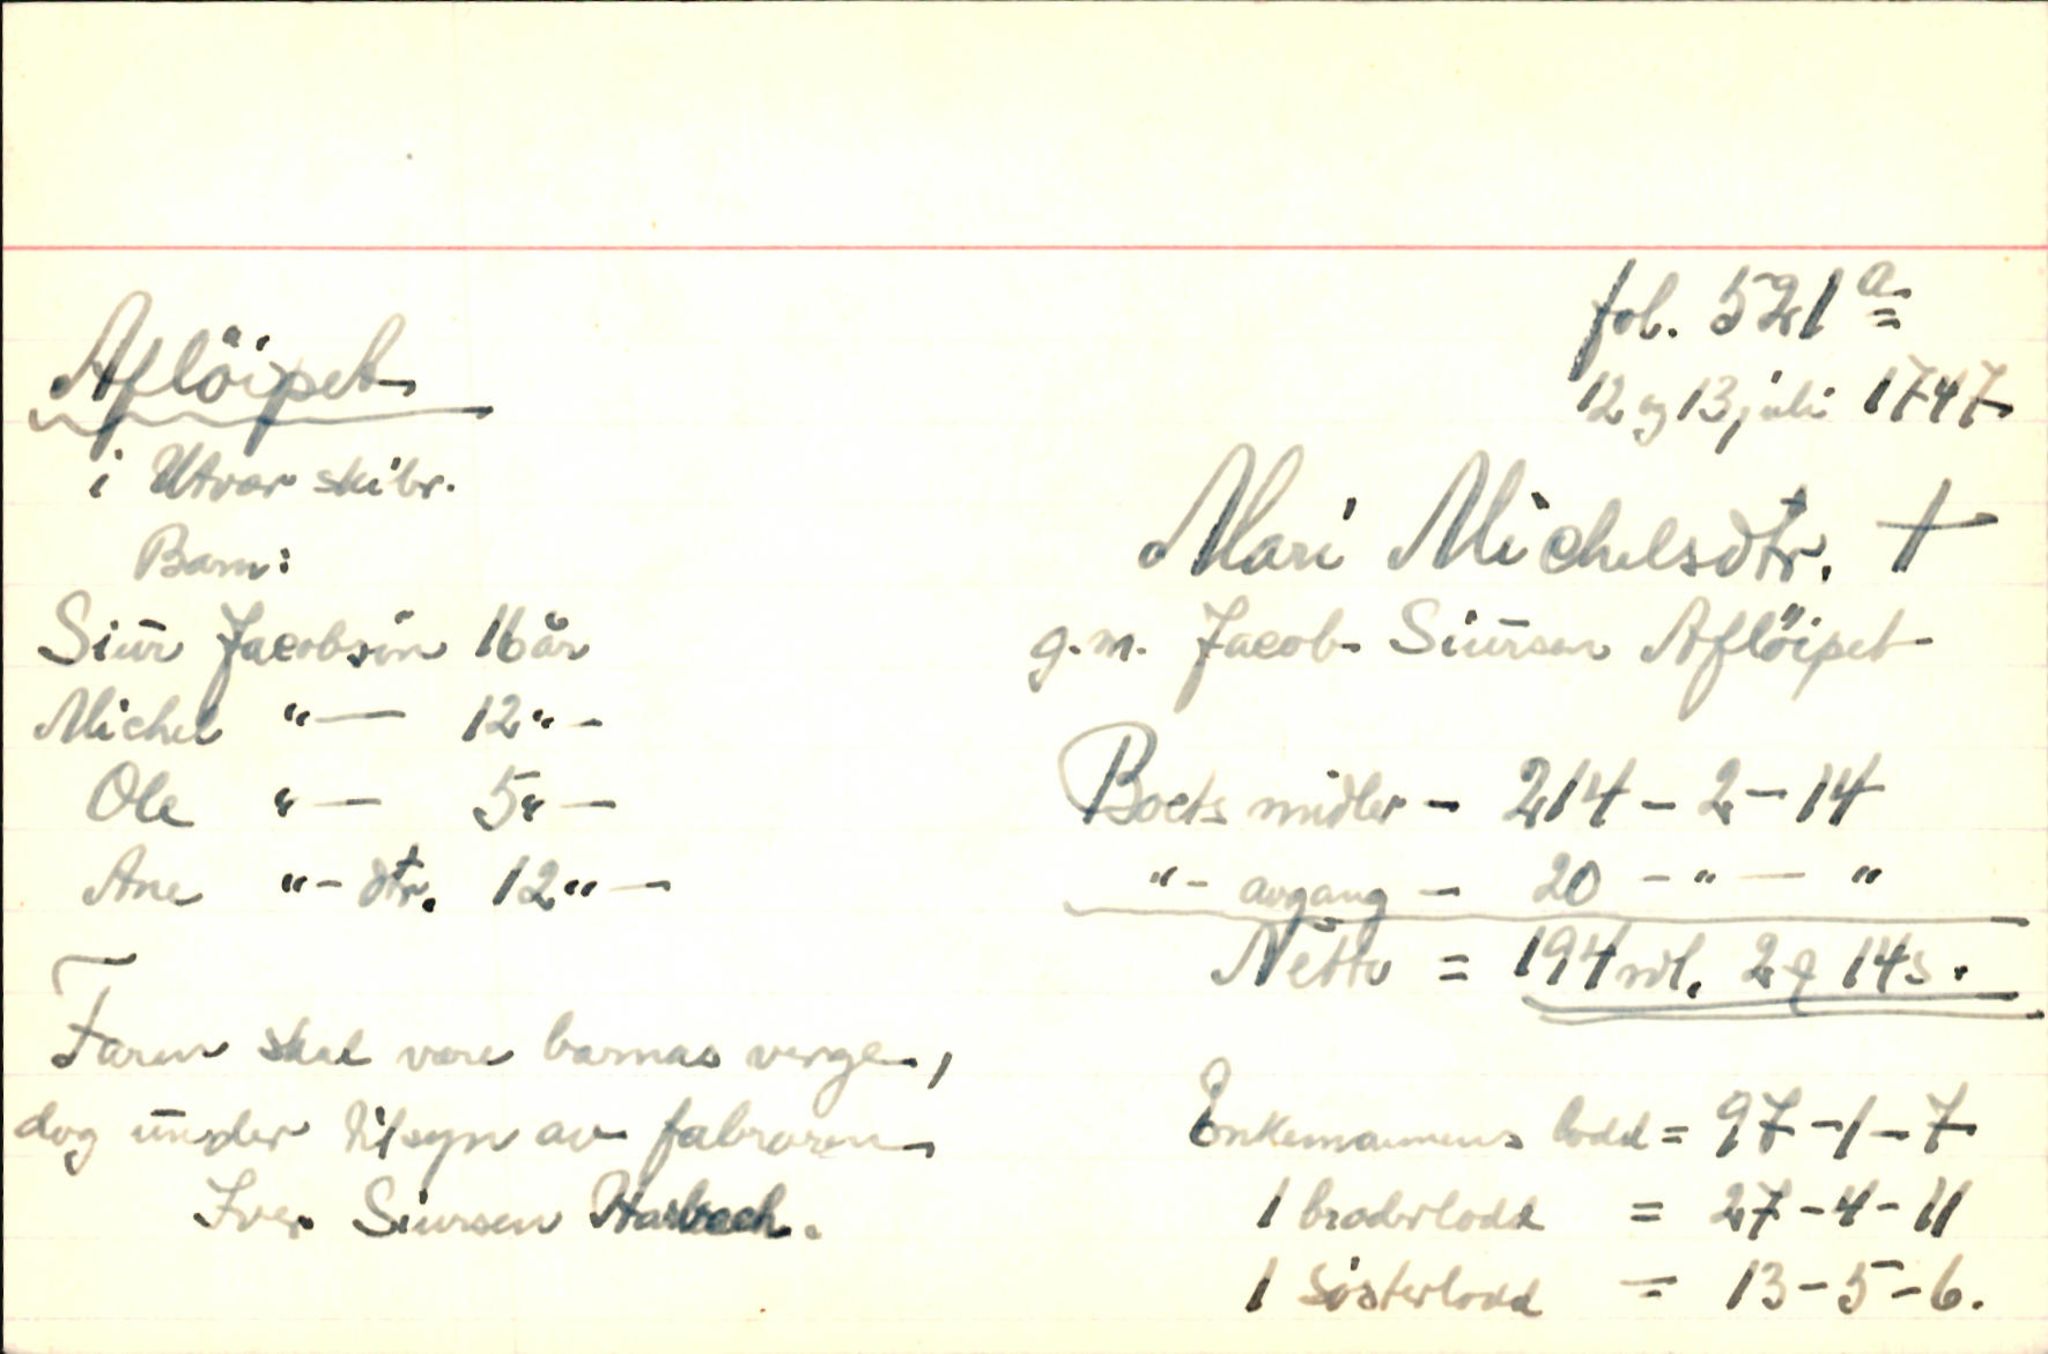 fol. 521a
12 og 13 juli 1747
Aflöipet
i Utvær skibr.
Mari Michelsdtr. †
g.m. Jacob Siursen Aflöipet
Barn:
Siur Jacobsön 16 år
Michel "— 12 " –
Ole "— 5 " —
Ane "– dtr. 12 " —
Boets midler – 214 – 2 – 14
" – avgang – 20 – " — "
Netto = 194 rdl. 2 14 s.
Faren skal være barnas verge,
dog under tilsyn av farbroren
Iver Siursen
Enkemannens lodd = 97 – 1 – 7
1 broderlodd = 27 – 4 – 11
1 Sösterlodd = 13 – 5 – 6.